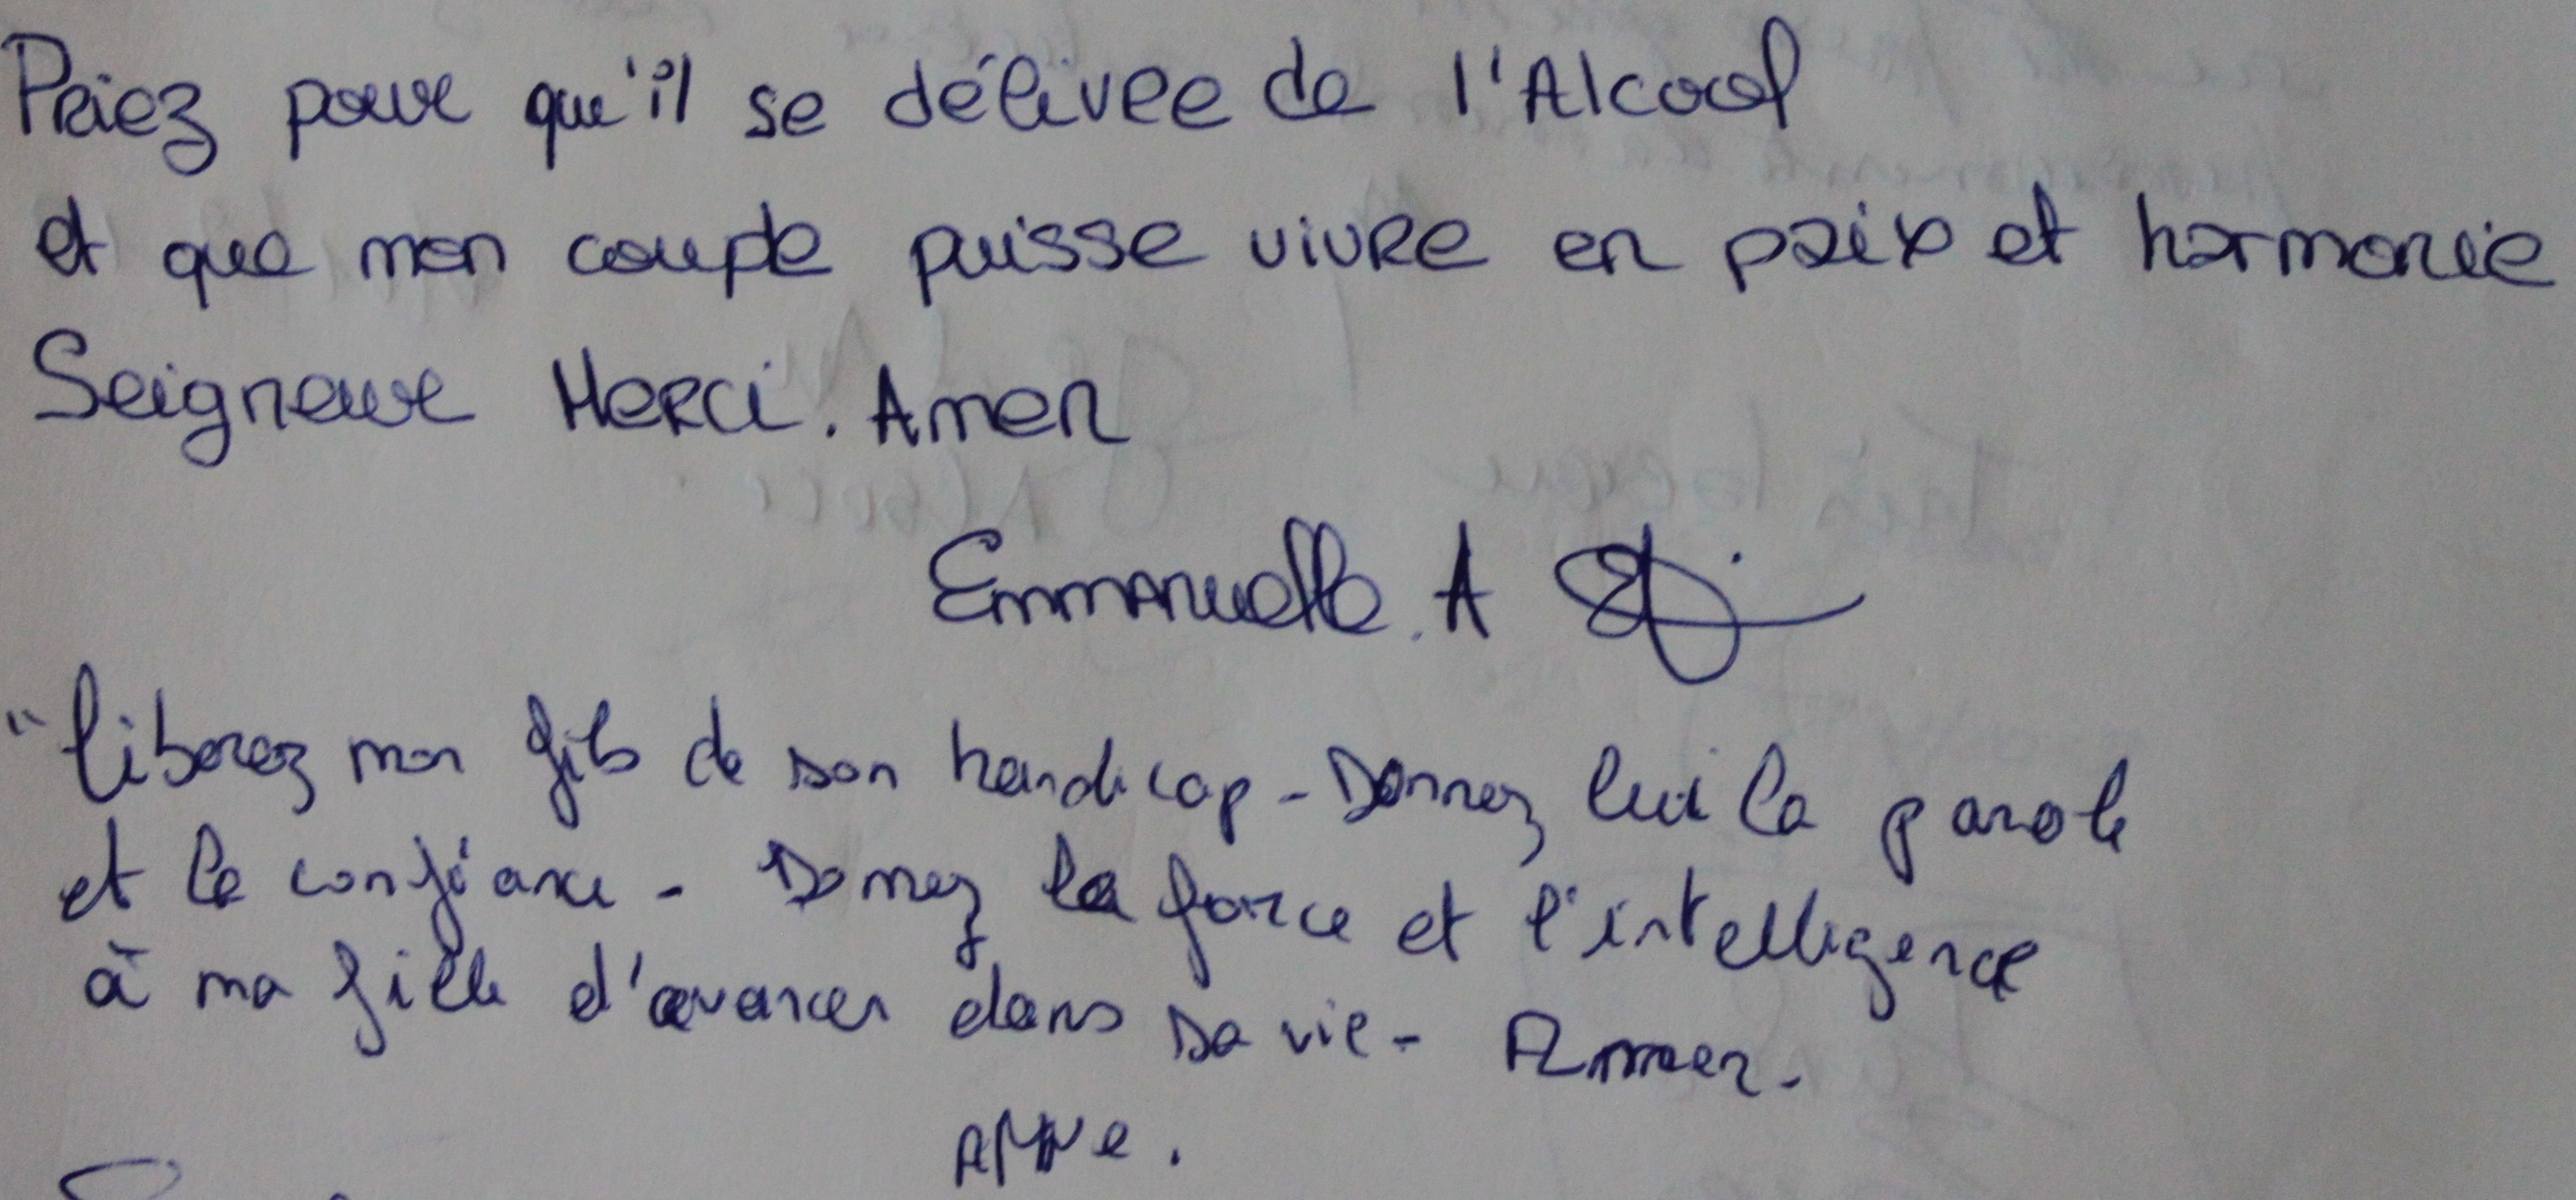 Priez pour qu'il se délivre de l'Alcool
et que mon couple puisse vivre en paix et harmonie
Seigneur Merci. Amen
Emmanuelle. A
"liberez mon fils de son handicap - Donnez lui la parole
et la confiance - Donnez la force et l'intelligence
à ma fille d'avancer dans sa vie - Amen -
ANNe.